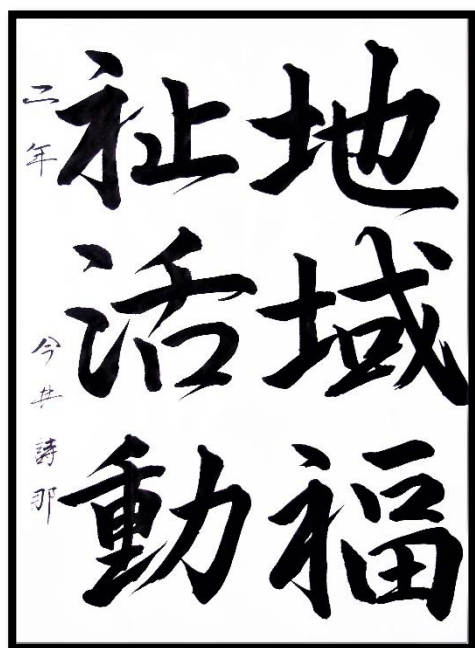 地域福
祉活動
二年 今井詩那